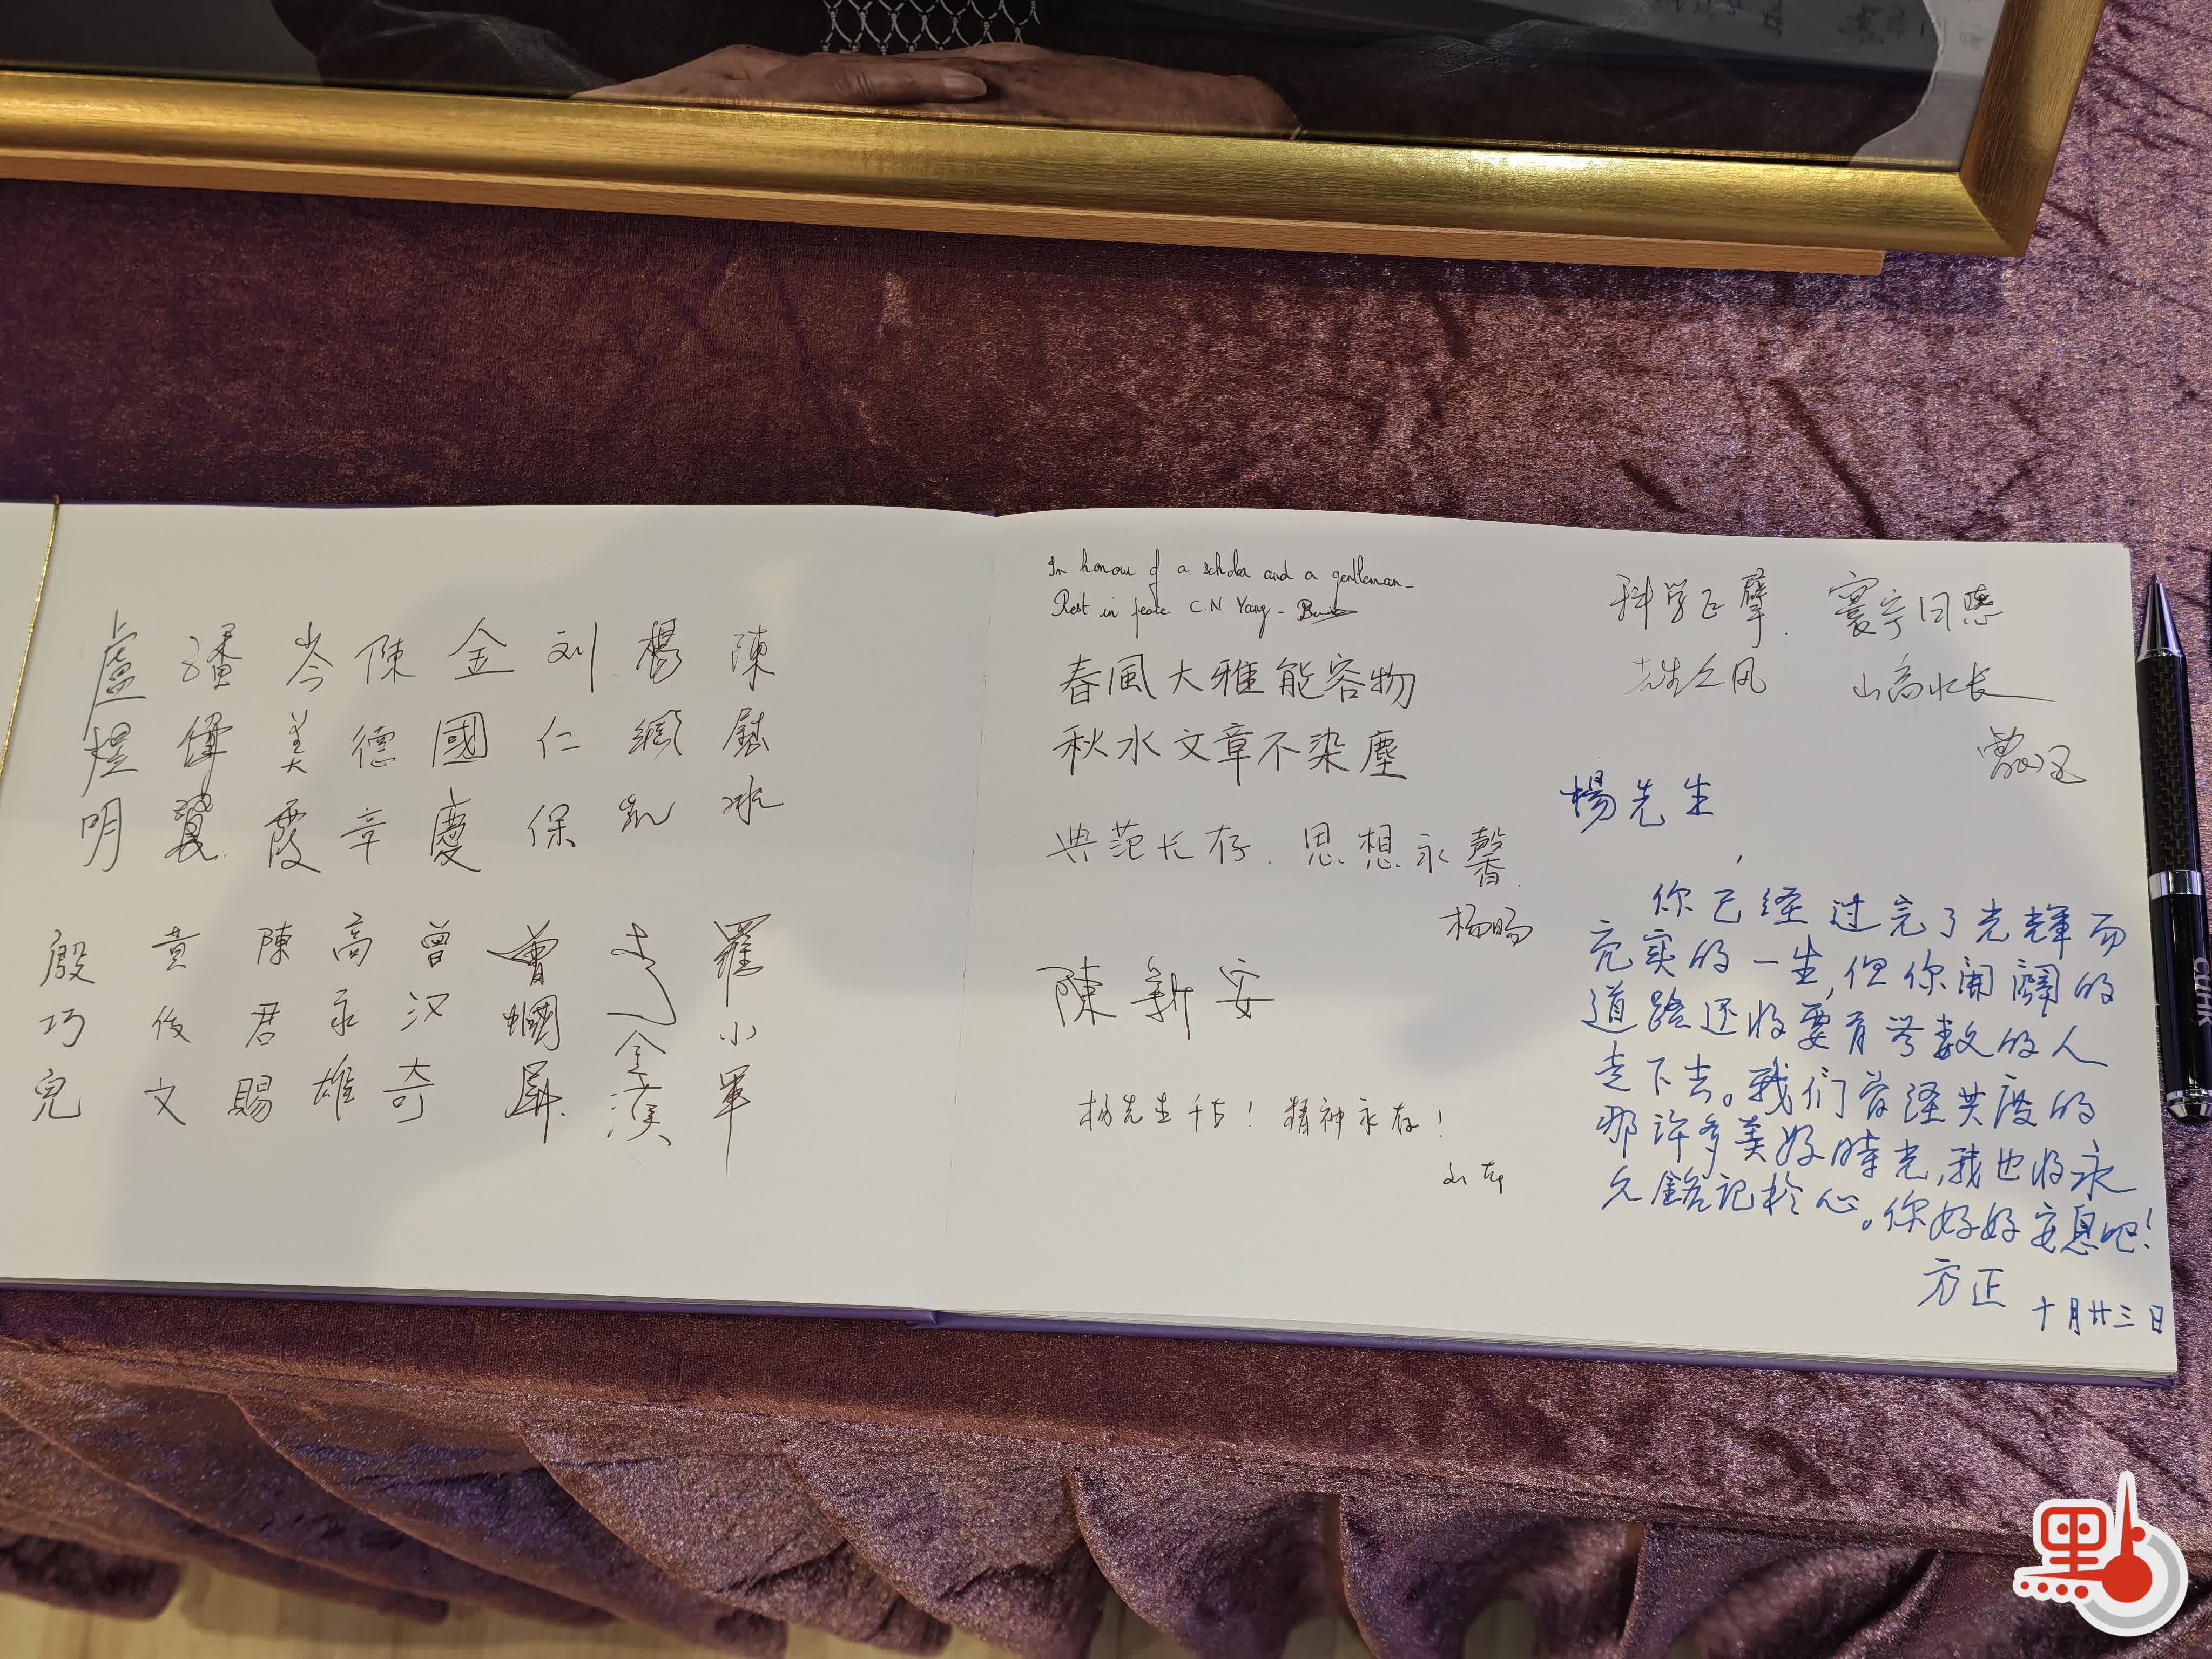 陳
楊
刘仁保
金國慶
陳德章
岑美霞
潘偉
盧煜明
羅小軍
曾
曾汉奇
高永雄
陳君賜
黃俊文
殷巧兒
In honour of a scholar and a gentleman -
Rest in peace C.N Yang -
春風大雅能容物
秋水文章不染塵
典范长存. 思想永馨.
杨旸
陳新安
杨先生千古! 精神永存!
科学巨擘. 寰宇同悲
先生之风 山高水长
楊先生,
你已经过完了光輝而
充实的一生,但你開闢的
道路还将要有無数的人
走下去。我们曾经共度的
那许多美好時光,我也将永
久銘記於心。你好好安息吧!
方正
十月廿三日
CUHK
點